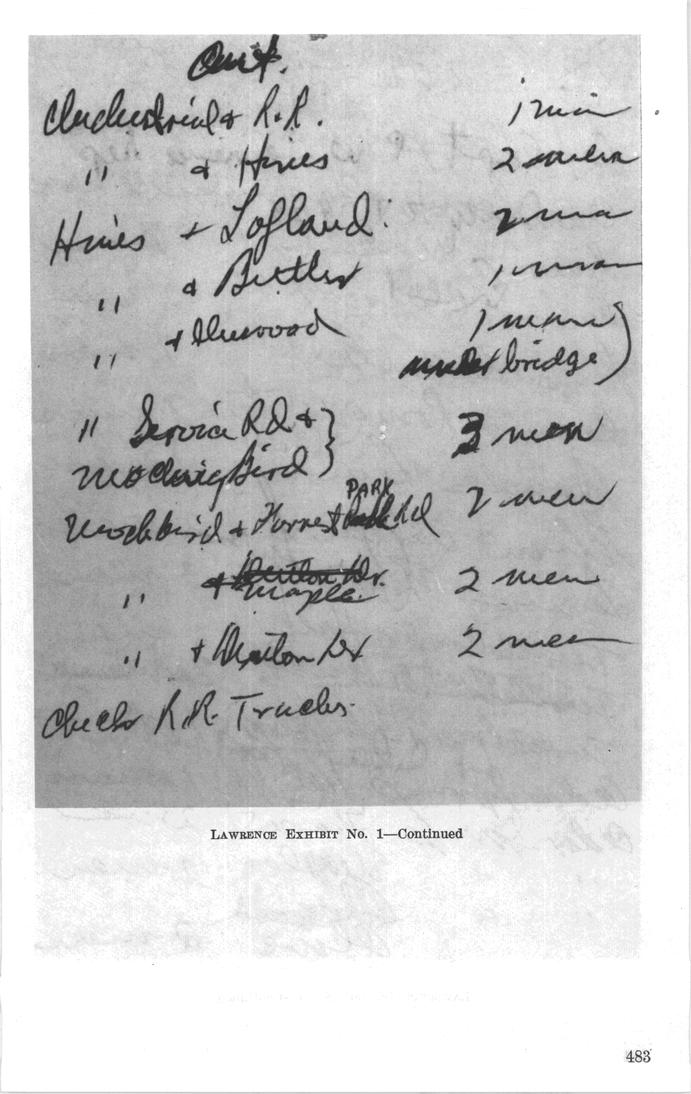 Out.
Industrial & R.R. 1 man
" & Hines 2 men
Hines & Lofland 2 men
" & Butler 1 man
" & Inwood 1 man
under bridge)
" Service Rd & } 3 men
MockingBird }
Mockbird & Forrest PARK Rd 2 men
" & Denton Dr.
Maple 2 men
" & Denton Dr 2 men
Check R.R. Tracks.
LAWRENCE EXHIBIT No. 1—Continued
483